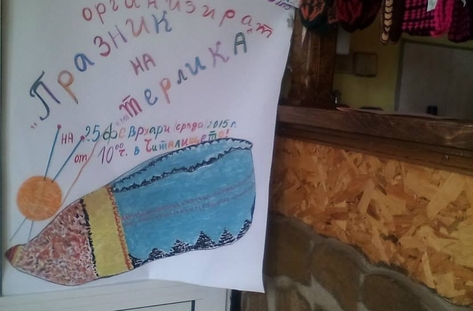 организират
"Празник
на
терлика"
на 25 февруари (сряда) 2015 г.
от 10⁰⁰ ч. в Читалището!